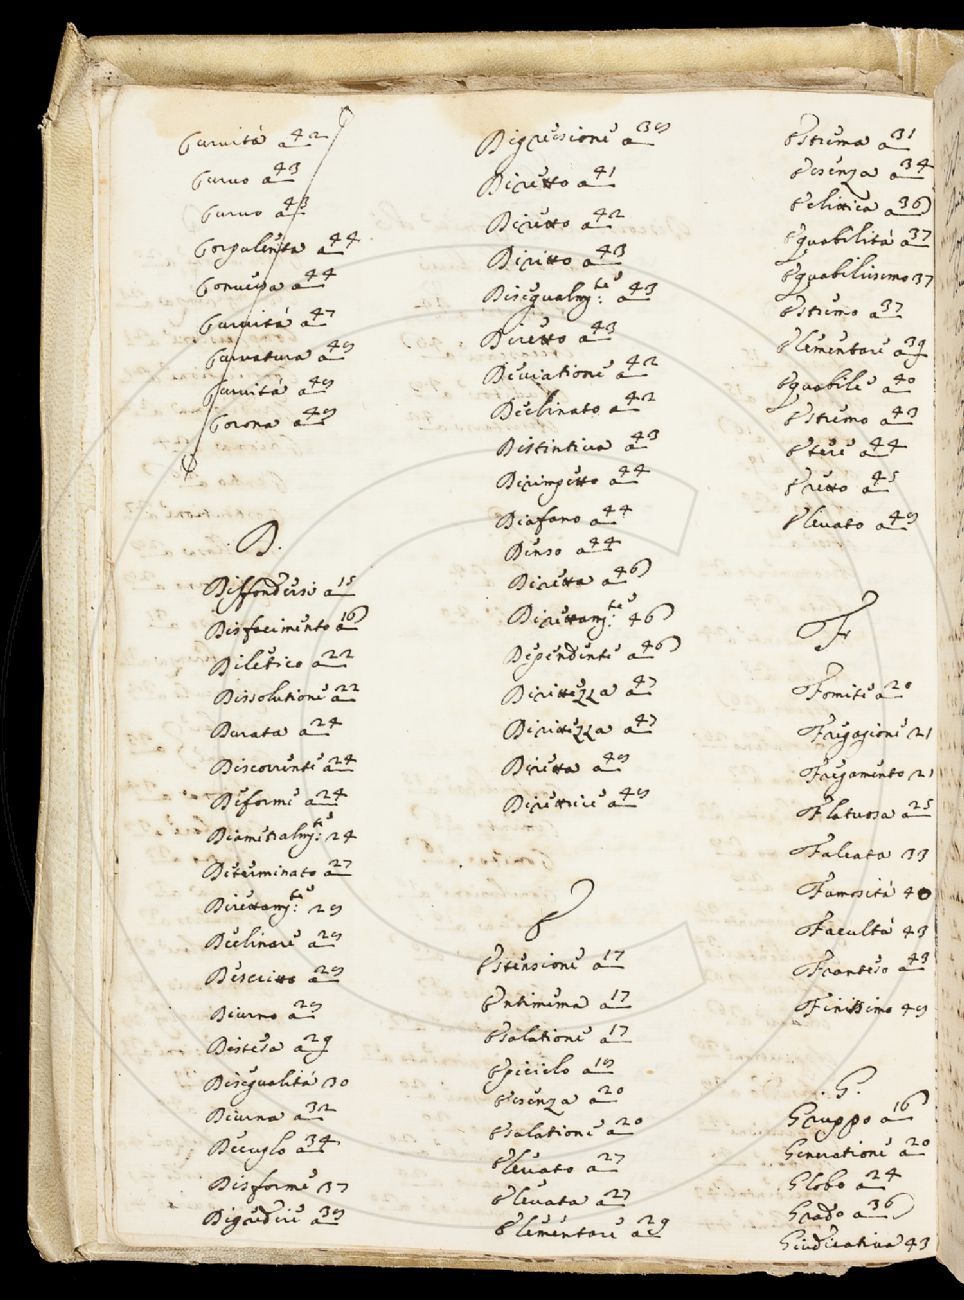 Curuità a 42
Curuo a 43
Curuo a 43
Corpulenta a 44
Conuessa a 44
Curuità a 47
Curuatura a 49
Curuità a 49
Corona a 49
D.
Diffondersi a 15
Disfacimento a 16
Diletico a 22
Dissolutione a 22
Durata a 24
Discorrente a 24
Deforme a 24
Diametralmte: 24
Determinato a 27
Direttamte: 29
Declinare a 29
Descritto a 29
Diurno a 29
Distesa a 29
Disegualità 30
Diurna a 32
Deuesso a 34
Disforme 37
Digredire a 39
Digressione a 39
Diretto a 41
Diretto a 42
Diritto a 43
Disegualmte: a 43
Diretto a 43
Deuiatione a 42
Declinato a 42
Distintiua a 43
Dirimpetto a 44
Diafano a 44
Denso a 44
Diretta a 46
Direttamte: 46
Dependente a 46
Dirittezza a 47
Dirittezza a 47
Diretta a 49
Direttrice a 49
E
Estensione a 17
Entimema a 17
Esalatione a 17
Epiciclo a 19
Essenza a 20
Esalatione a 20
Eleuato a 27
Eleuata a 27
Elementare a 29
Estrema a 31
Essenza a 34
Eclittica a 36
Equabilità a 37
Equabilissimo 37
Estremo a 37
Elementare a 39
Equabile a 40
Estremo a 43
Etere a 44
Eretto a 45
Eleuato a 49
F
Fomite a 20
Fregagione 21
Fregamento 21
Flatuosa a 25
Falcata 33
Fumosità 40
Facultà 43
Fronteso a 43
Finissimo 49
G.
Gruppo a 16
Generatione a 20
Globo a 24
Grado a 36
Giudicatiua 43